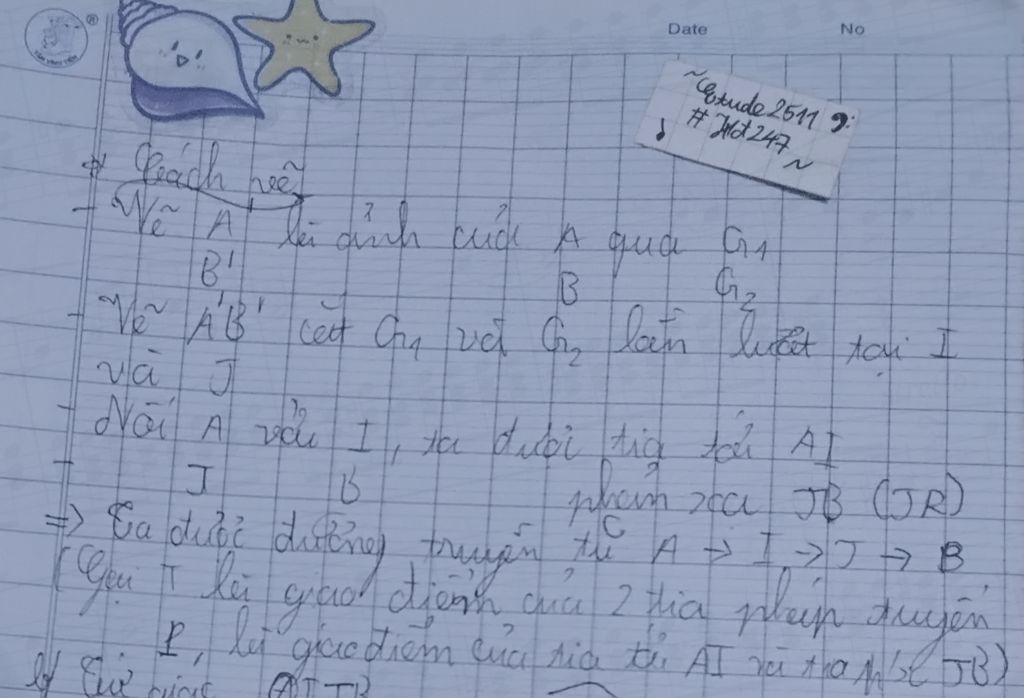 Date No
~ Etude2511
# Hd247 ~
* Cách vẽ
- Vẽ A' là ảnh của A qua G1
B' B G2
- Vẽ A'B' cắt G1 và G2 lần lượt tại I
và J
- Nối A với I, ta được tia tới AI
- J B phản xạ JB (JR)
=> Ta được đường truyền từ A → I → J → B
(Gọi T là giao điểm của 2 tia pháp tuyến
P, là giao điểm của tia tới AI và JB)
b) Tứ giác